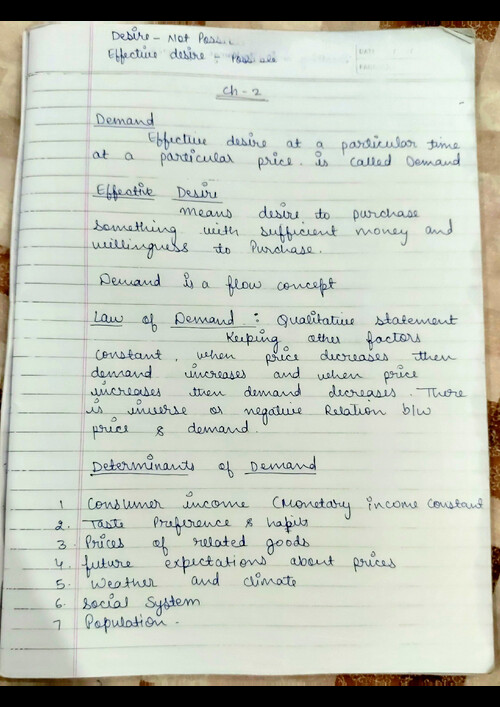 Desire - Not Possi
Effective desire - Possible
DATE
Ch - 2
Demand
Effective desire at a particular time
at a particular price. is called Demand
Effective Desire
means desire to purchase
something with sufficient money and
willingness to Purchase.
Demand is a flow concept
Law of Demand : Qualitative statement
Keeping other factors
constant, when price decreases then
demand increases and when price
increases then demand decreases. There
is inverse or negative Relation b/w
price & demand.
Determinants of Demand
1 Consumer income (Monetary income constant
2. Taste Preference & habits
3. Prices of related goods
4. future expectations about prices
5. Weather and climate
6. Social System
7 Population.